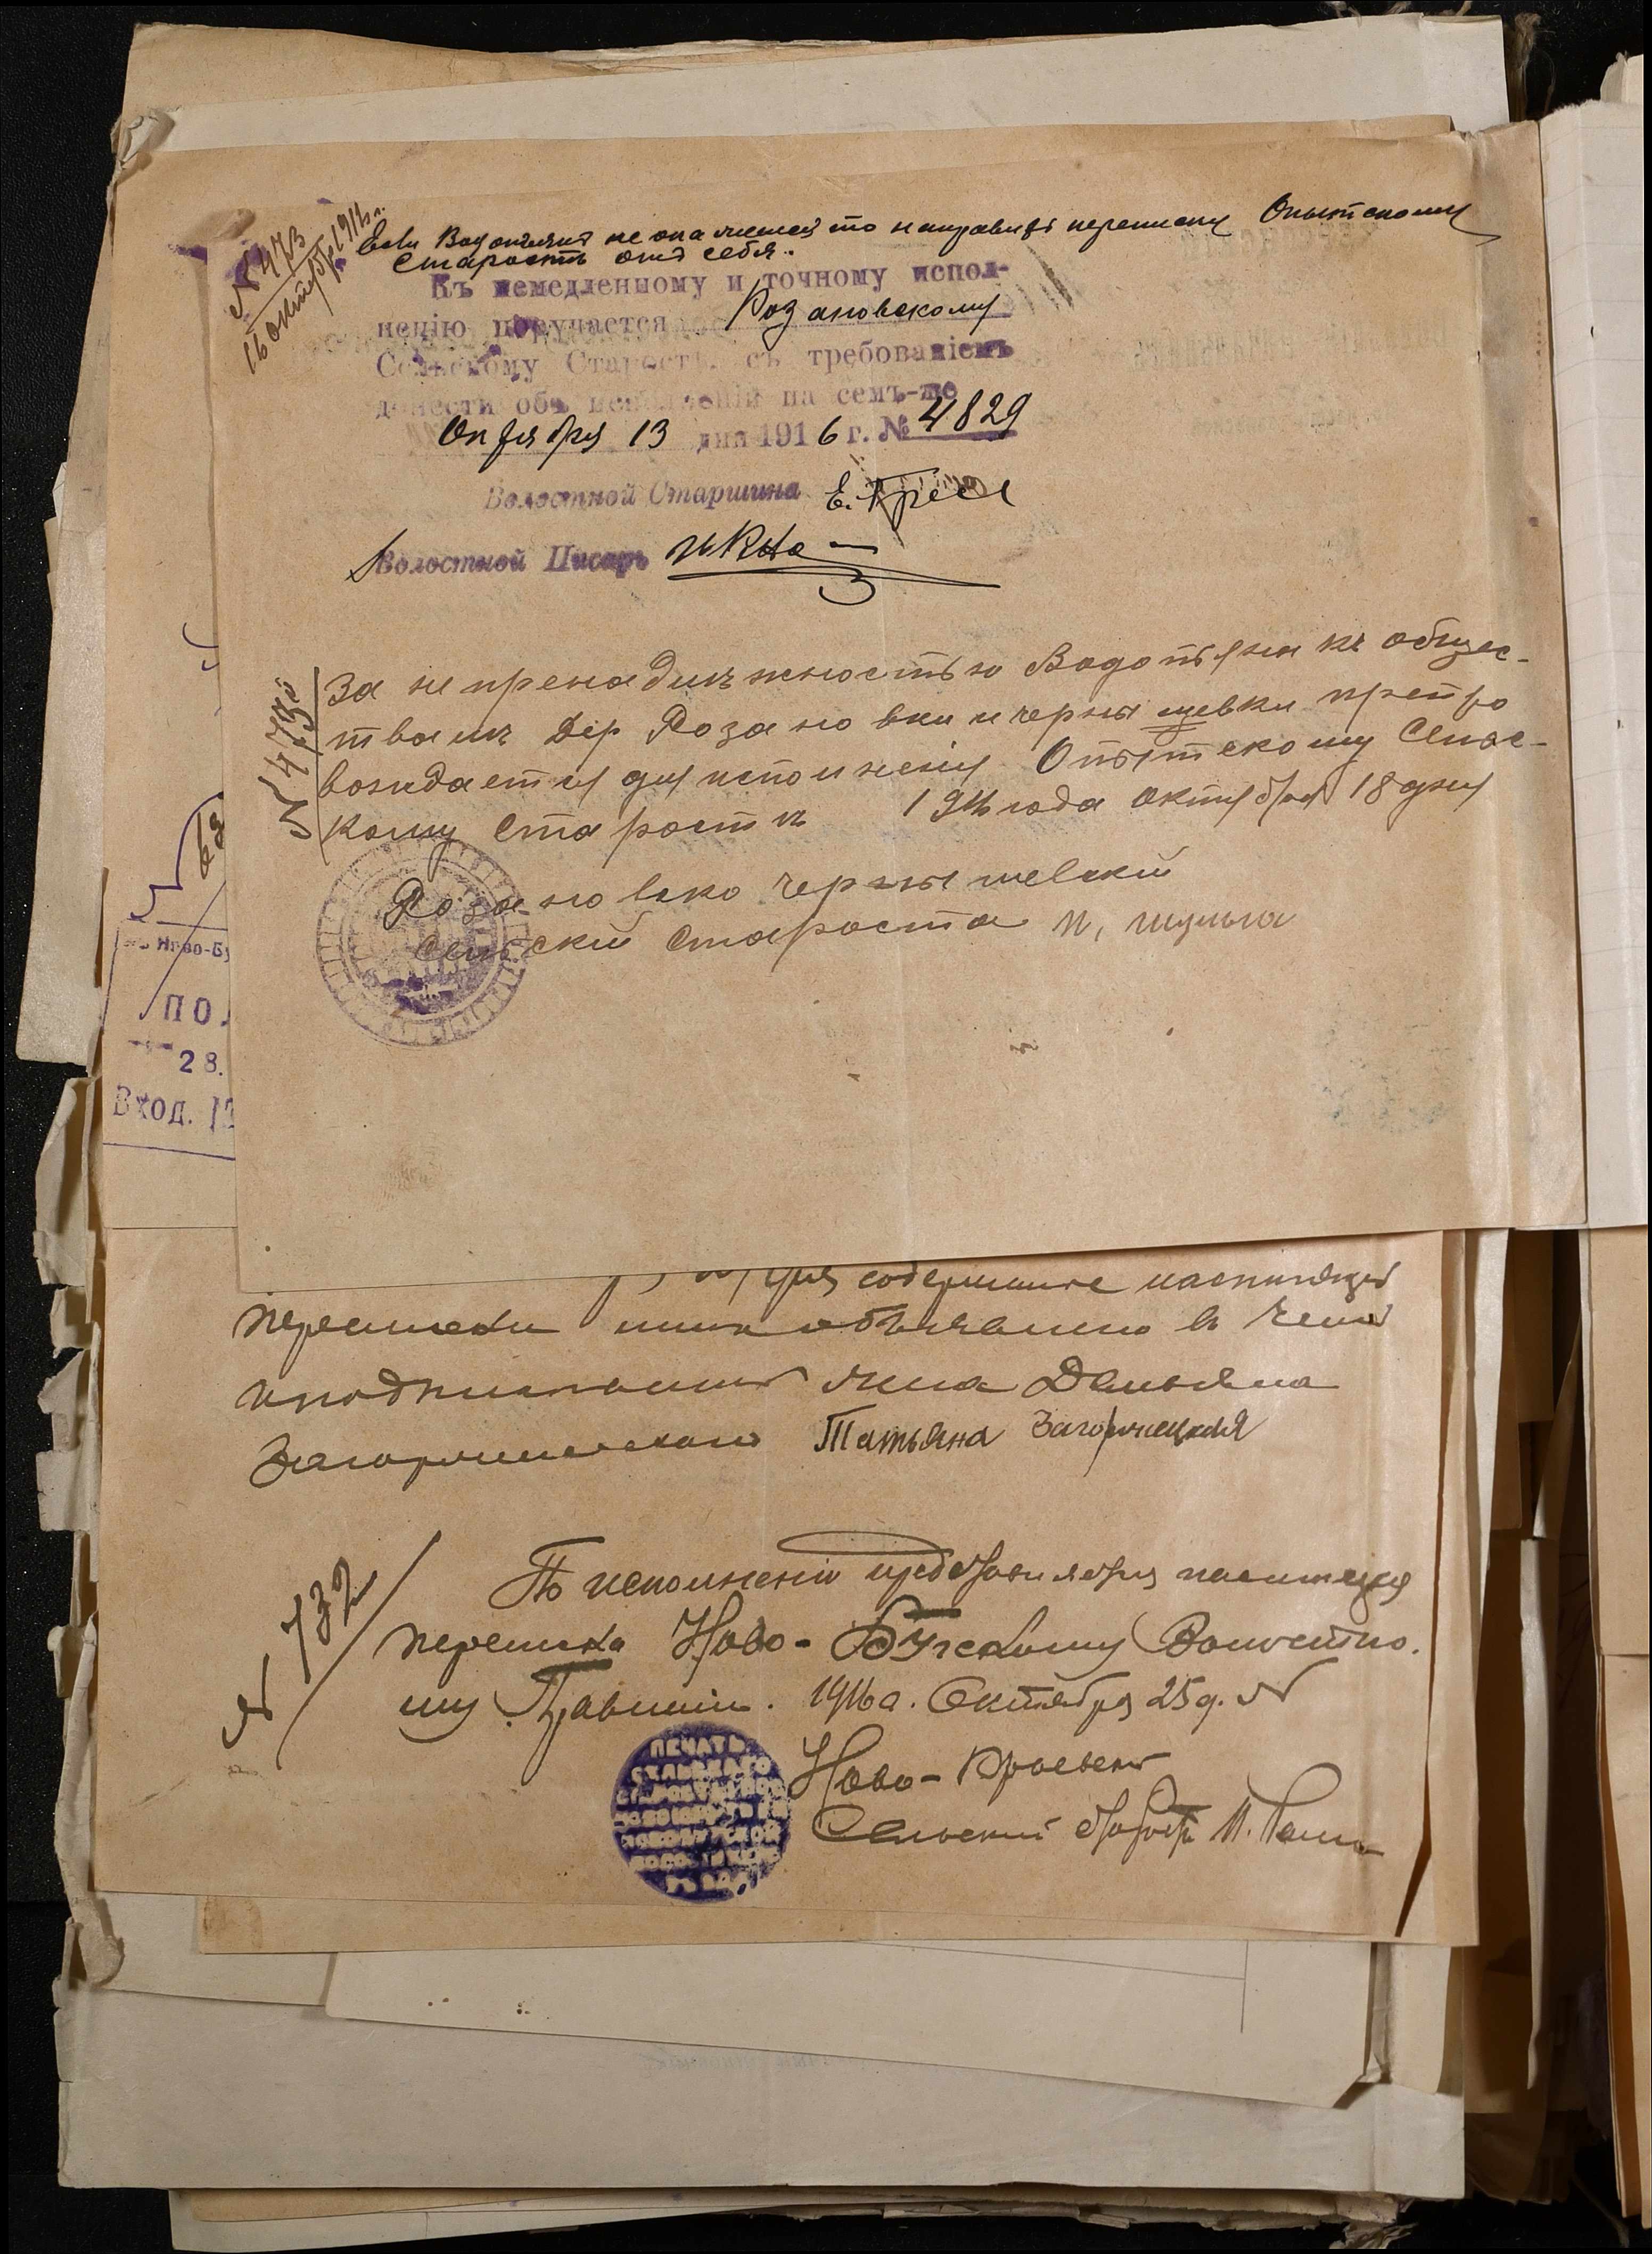 № 473
16 октября 1916 г.
Если Водопьянъ не опа то направить переписку Опытскому
Старостѣ отъ себя.
Къ немедленному и точному испол-
ненію поручается Розановскому
Сельскому Старостѣ съ требованіемъ
донести объ исполненіи на семъ-же
Октября 13 дня 1916 г. № 4829
Волостной Старшина Е.
Волостной Писарь
№ 473
За непренадлежностью Водопьяна къ общес-
твамъ Дер Розановки и чернышевки препро
вождается для исполненія Опытскому Сельс-
кому Старостѣ 1916 года октября 18 дня
Розановско чернышевскій
Сельскій Староста п, шульга
Ново-Бу
ПО
28.
Вход.
содержание настоящей
переписки мнѣ объявлено в чемъ
и подписываюсь жена Демьяна
Загоруйського Татьяна
№ 732
По исполненіи представляется настоящая
переписка Ново-Бугскому Волостно.
му Правленію. 1916 г. Октября 25 д. №
Ново-
Сельский Старостъ И.
ПЕЧАТЬ
СЕЛЬСКАГО